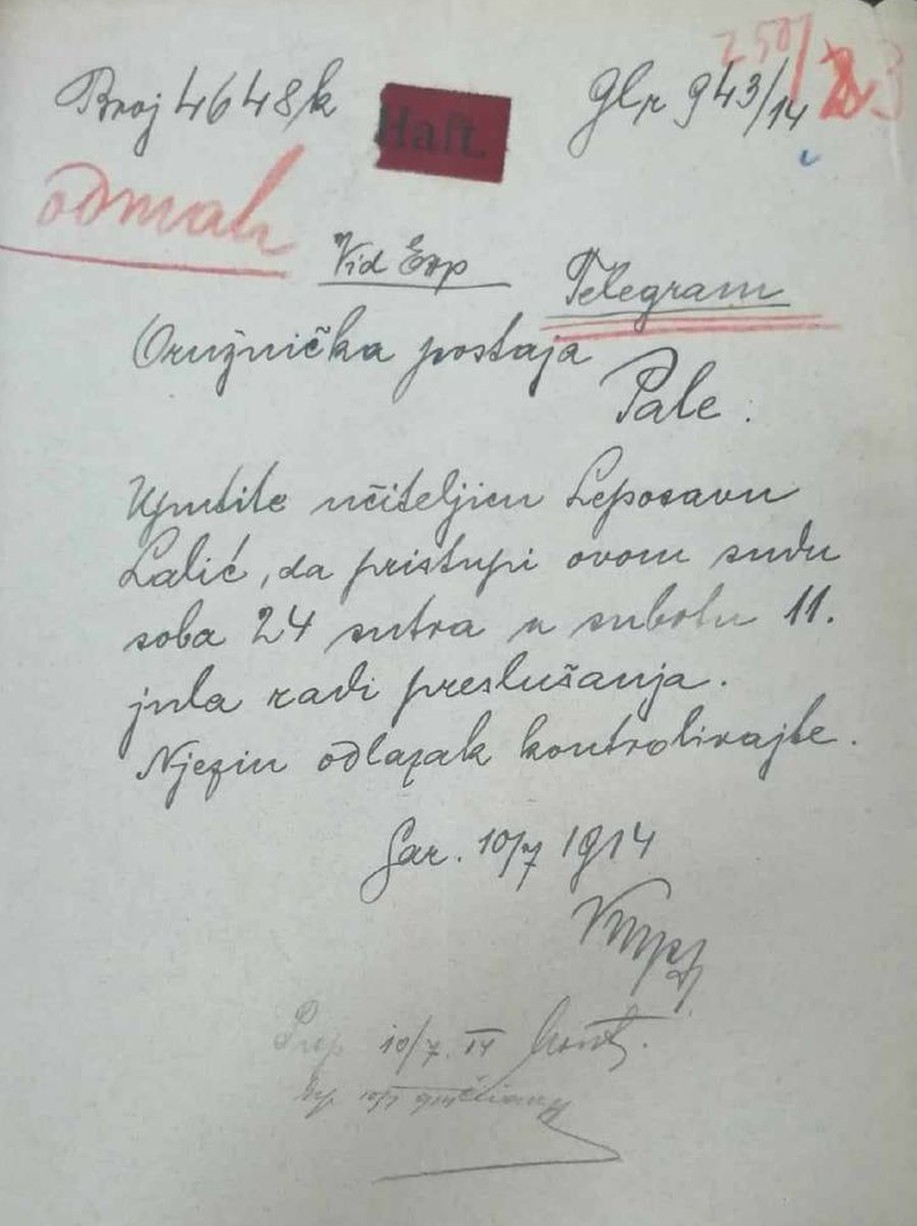 250/23
Broj 4648/k Haft. Glr 943/14
odmah
Vid Exp Telegram
Oružnička postaja
Pale.
Uputite učiteljicu Leposavu
Lalić, da pristupi ovom sudu
soba 24 sutra u subotu 11.
jula radi preslušanja.
Njezin odlazak kontrolirajte.
Sar. 10/7 1914
10/7. 14